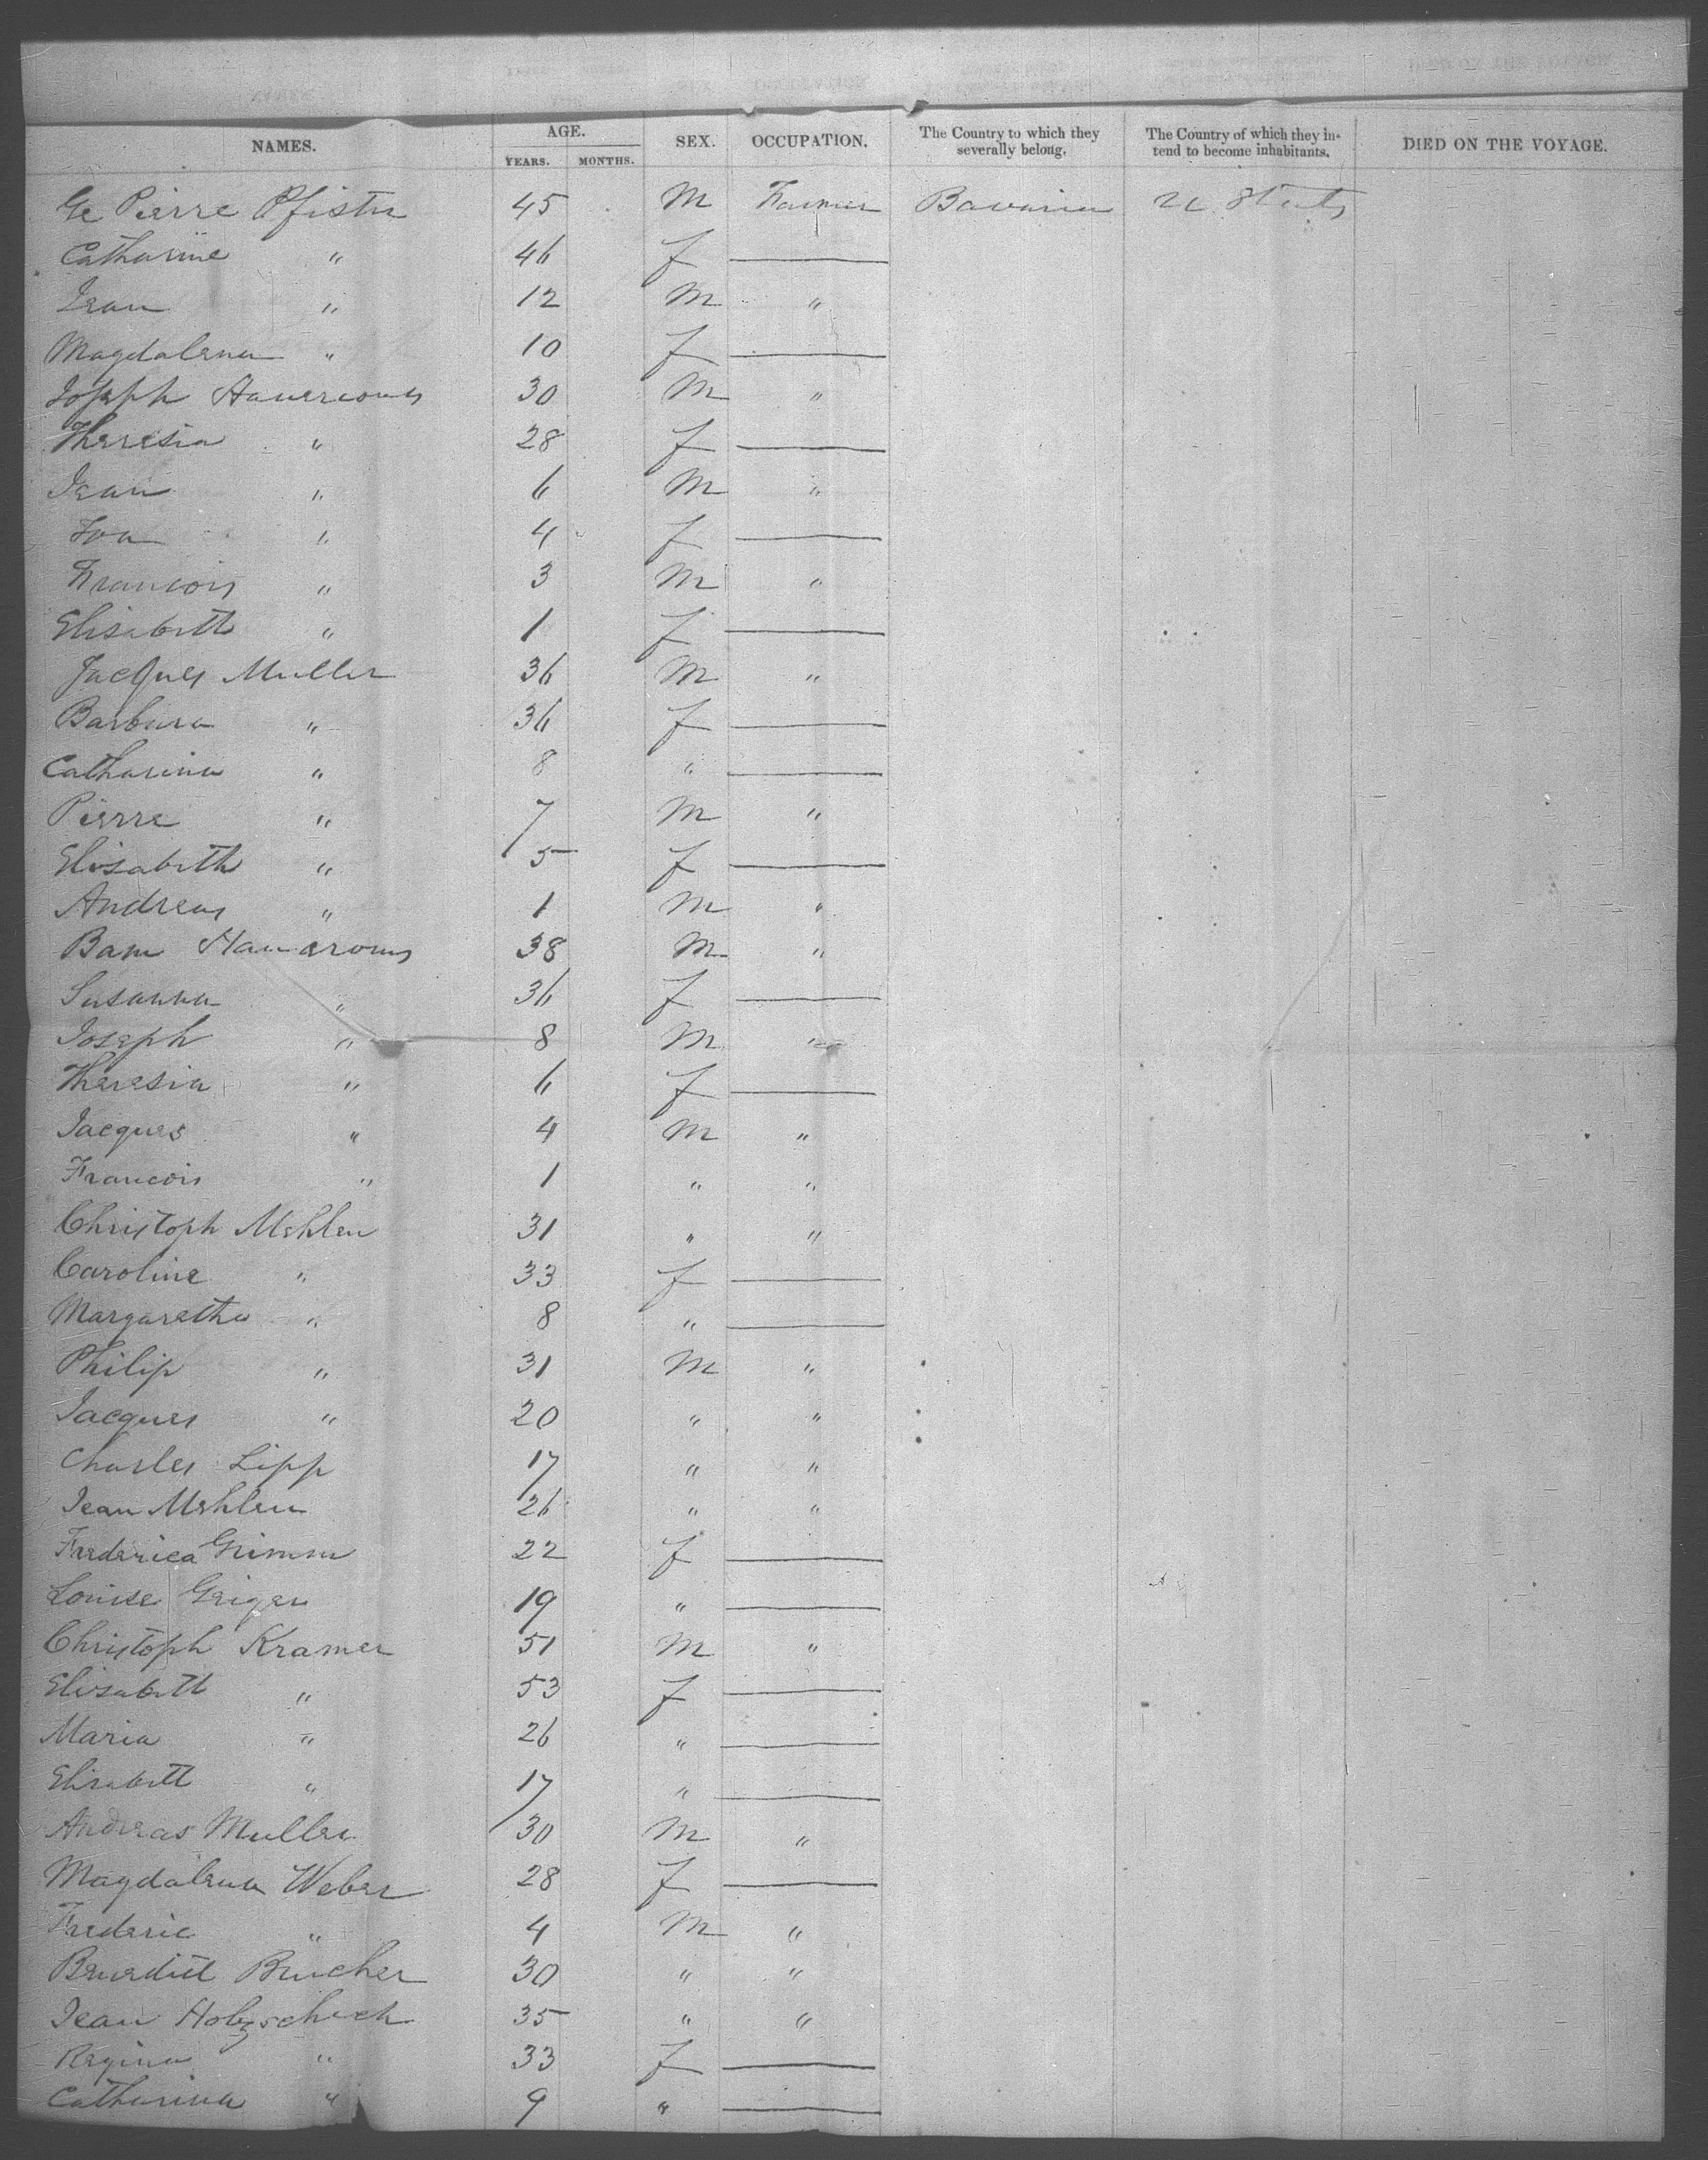 NAMES. AGE. SEX. OCCUPATION. The Country to which they severally belong. The Country of which they intend to become inhabitants. DIED ON THE VOYAGE.
YEARS. MONTHS.
Ge Pierre Pfister 45 M Farmer Bavaria U. States
Catharine " 46 f —
Jean " 12 M "
Magdalena " 10 f —
Joseph 30 M "
Theresia " 28 f —
Jean " 6 M "
" 4 f —
Francois " 3 M "
Elisabeth " 1 f —
Jacques Muller 36 M "
Barbara " 36 f —
Catharina " 8 " —
Pierre " 7 M "
Elisabeth " 5 f —
Andreas " 1 M "
38 M "
Susanna " 36 f —
Joseph " 8 M "
Theresia " 6 f —
Jacques " 4 M "
Francois " 1 " "
Christoph Mehlen 31 " "
Caroline " 33 f —
Margaretha " 8 " —
Philip " 31 M "
Jacques " 20 " "
Charles Lipp 17 " "
Jean Mehlen 26 " "
Frederica Grimm 22 f —
Louise Geiger 19 " —
Christoph Kramer 51 M "
Elisabeth " 53 f —
Maria " 26 " —
Elisabeth " 17 " —
Andreas Muller 30 M "
Magdalena Weber 28 f —
Frederic " 4 M "
Benedict 30 " "
Jean 35 " "
Regina " 33 f —
Catharina " 9 " —